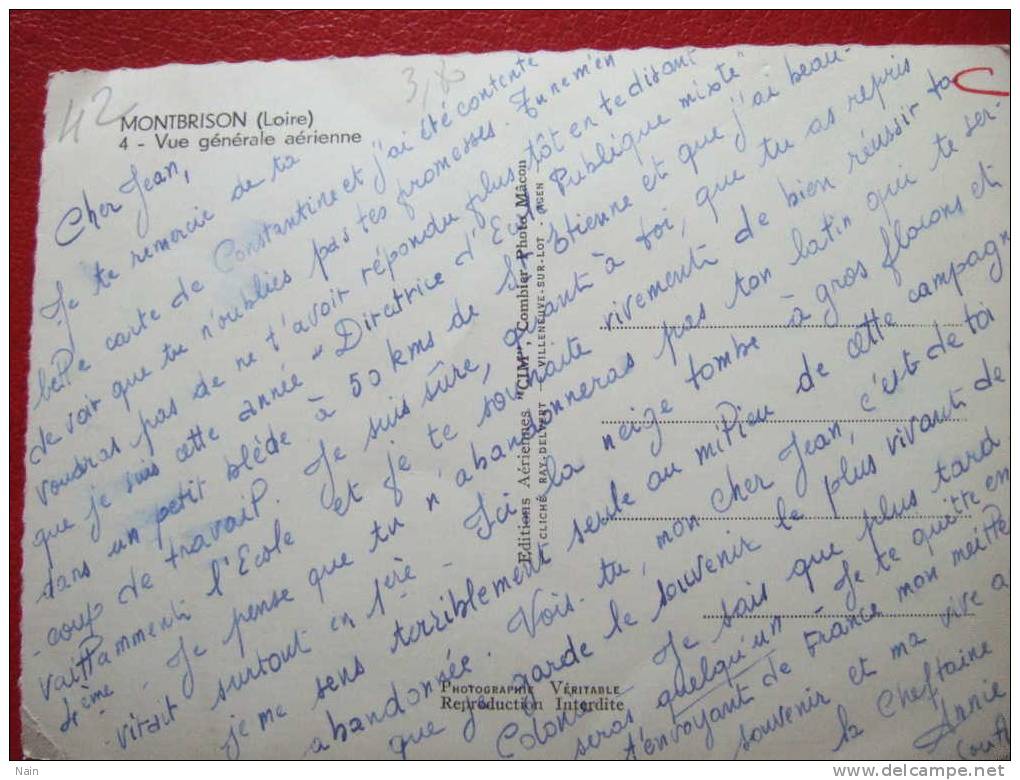 42
3,80
MONTBRISON (Loire)
4 - Vue générale aérienne
Cher Jean,
Je te remercie de ta
belle carte de Constantine et j'ai été contente
de voir que tu n'oublies pas tes promesses. Tu ne m'en
voudras pas de ne t'avoir répondu plus tôt en te disant
que je suis cette année "Directrice d'Ecole Publique mixte"
dans un petit blède à 50 kms de St Etienne et que j'ai beau-
-coup de travail. Je suis sûre, quant à toi, que tu as repris
vaillamment l'Ecole et je te souhaite vivement de bien réussir ta
4ème - Je pense que tu n'abandonneras pas ton latin qui te ser-
virait surtout en 1ère - Ici la neige tombe à gros flocons et
je me sens terriblement seule au milieu de cette campagn
abandonnée. Vois-tu, mon cher Jean, c'est de toi
que je garde le souvenir le plus vivant de
Colonie - Je sais que plus tard
seras quelqu'un - Je te quitte en
t'envoyant de France mon meille
souvenir et ma vive a
la Cheftaine
Annie
Editions Aériennes "CIM", Combier Photo Mâcon
CLICHÉ RAY-DELVERT VILLENEUVE-SUR-LOT - AGEN
PHOTOGRAPHIE VÉRITABLE
Reproduction Interdite
Nain
www.delcampe.net